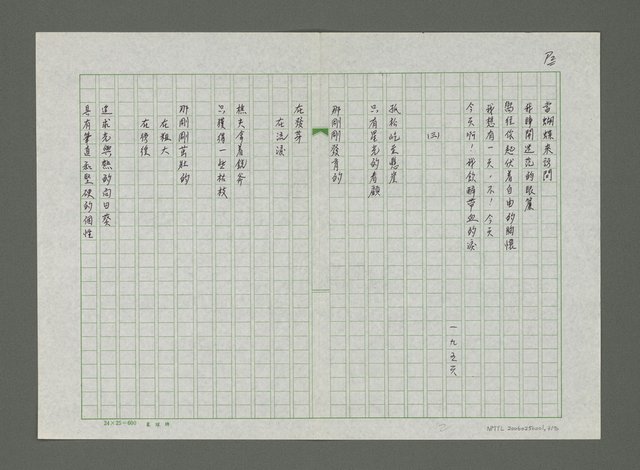 P2
當蝴蝶來訪問
我睜開迷茫的眼簾
您經你起伏着自由的胸懷
我想有一天，不！今天
今天啊！我飲醉帶血的淚
一九五六
(三)
孤松屹立懸崖
只有星光的看顧
那剛剛發育的
在發芽
在活潑
樵夫拿着鋭斧
只獲得一些枯枝
那剛剛茁壯的
在粗大
在
追求光與熱的向日葵
具有筆直和堅硬的個性
24×25=600
2
NMTL